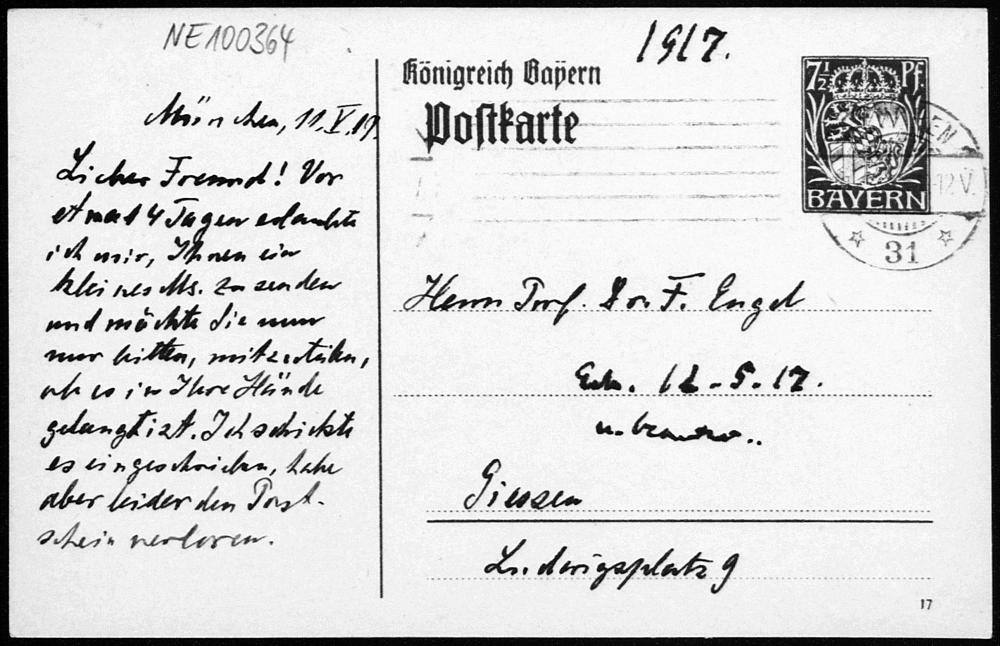 NE100364
1917.
Königreich Bayern
Postkarte
7½ Pf
BAYERN
12.V.
31
München, 11.V.19
Lieber Freund! Vor
etwa 4 Tagen erlaubte
ich mir, Ihnen ein
kleines Ms. zu senden
und möchte Sie nun
nur bitten, mitzuteilen,
ob es in Ihre Hände
gelangt ist. Ich schickte
es eingeschrieben, habe
aber leider den Post-
schein verloren.
Herrn Prof. Dr. F. Engel
12.5.17.
Giessen
Ludwigsplatz 9
17